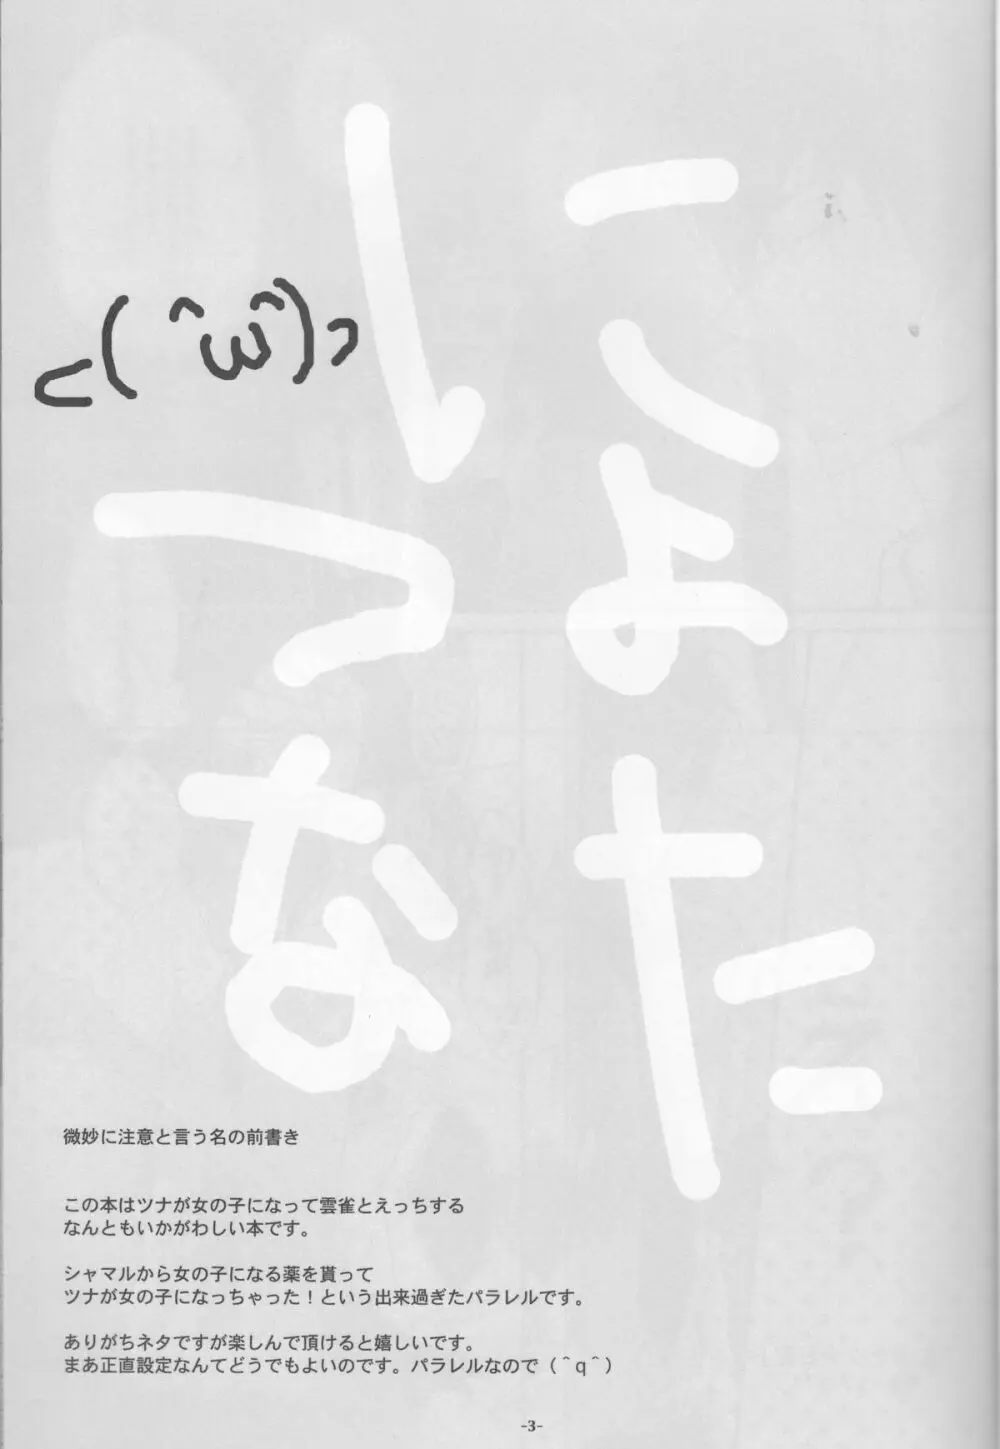 にょた
つな
⊂( ^ω^)⊃
微妙に注意と言う名の前書き
この本はツナが女の子になって雲雀とえっちする
なんともいかがわしい本です。
シャマルから女の子になる薬を貰って
ツナが女の子になっちゃった！という出来過ぎたパラレルです。
ありがちネタですが楽しんで頂けると嬉しいです。
まあ正直設定なんてどうでもよいのです。パラレルなので（＾ｑ＾）
-3-